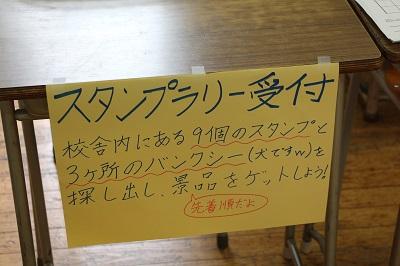 スタンプラリー受付
校舎内にある9個のスタンプと
3ヶ所のバンクシー(犬ですw)を
探し出し、景品をゲットしよう!
先着順だよ